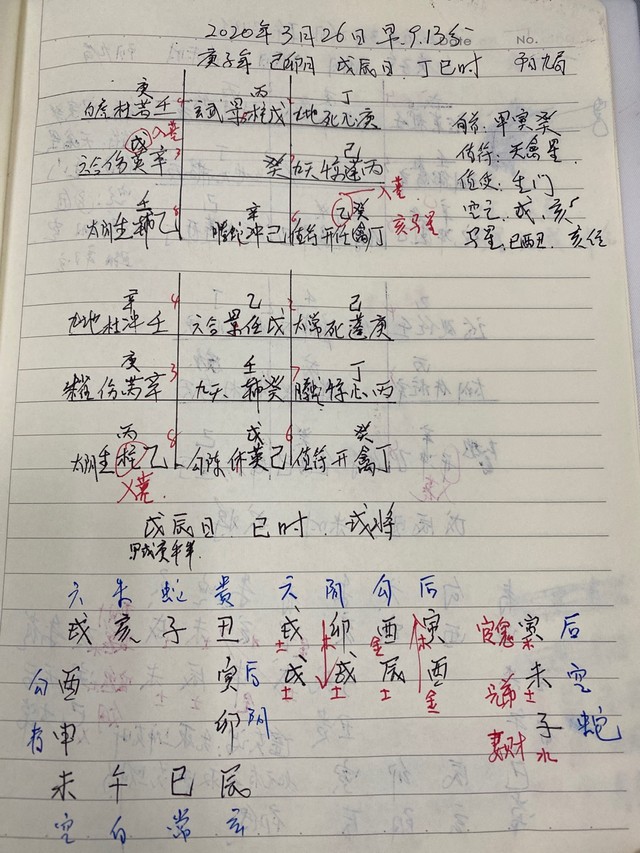 2020年3月26日早9.13分
No.
庚子年 己卯月 戊辰日 丁巳时 阳九局
庚 丙 丁
白虎杜芮壬 玄武景柱戊 九地死心庚
旬首:甲寅癸
戊入墓 己
六合伤英辛 癸 九天惊蓬丙
值符:天禽星
值使:生门
入墓
壬 辛 乙癸
太阴生辅乙 螣蛇冲己 值符开任禽丁 亥马星
马星
辛4 乙 2己
九地杜冲壬 六合景任戊 太常死蓬庚
庚3 壬 7丁
朱雀伤芮辛 九天辅癸 螣蛇惊心丙
丙8 戊 6癸
太阴生柱乙 勾陈休英己 值符开禽丁
入墓
戊辰日 巳时 戌将
六 朱 蛇 贵 六 阴 勾 后
戌 亥 子 丑 戌 卯 酉 寅 官鬼 寅 后
土 木 金 木 木
勾 酉 寅 后 戌 戌 辰 酉 兄弟 未 空
土 土 土 金 土
申 卯 阴 妻财 子 蛇
水
未 午 巳 辰
空 白 常 玄